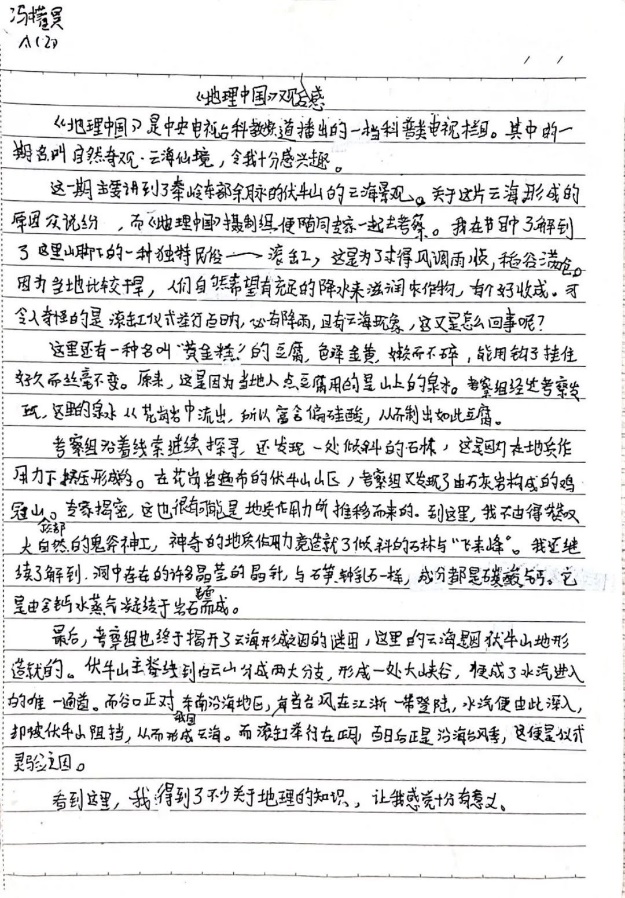 冯
八(2)
《地理中国》观后感
《地理中国》是中央电视台科教频道播出的一档科普类电视栏目。其中的一
期名叫自然奇观·云海仙境，令我十分感兴趣。
这一期主要讲到了秦岭东部余脉的伏牛山的云海景观。关于这片云海形成的
原因众说纷，而《地理中国》摄制组便随同专家一起去考察。我在节目中了解到
了这里山脚下的一种独特民俗——滚缸，这是为了求得风调雨顺，稻谷满仓。
因为当地比较干旱，人们自然希望有充足的降水来滋润农作物，有个好收成。可
令人奇怪的是滚缸仪式进行百日内，必有降雨，且有云海现象，这又是怎么回事呢？
这里还有一种名叫"黄金糕"的豆腐，色泽金黄，嫩而不碎，能用钩子挂住
好久而丝毫不变。原来，这是因为当地人点豆腐用的是山上的泉水。考察组经过考察发
现，这里的泉水从花岗岩中流出，所以富含偏硅酸，从而制出如此豆腐。
考察组沿着线索继续探寻，还发现一处倾斜的石林，这是因为在地质作
用力下挤压形成的。在花岗岩遍布的伏牛山山区，考察组又发现了由石灰岩构成的鸡
冠山。专家揭密，这也很有可能是地质作用力所推移而来的。到这里，我不由得赞叹
大自然的鬼斧神工，神奇的地质作用力竟造就了倾斜的石林与"飞来峰"。我还继
续了解到，洞中存在的许多晶莹的晶针，与石笋钟乳石一样，成分都是碳酸钙。它
是由含钙水蒸气凝结于岩石而成。
最后，考察组也终于揭开了云海形成之因的谜团，这里的云海是因伏牛山地形
造就的。伏牛山主脊线到白云山分成两大分支，形成一处大峡谷，便成了水汽进入
的唯一通道。而谷口正对东南沿海地区，每当台风在江浙一带登陆，水汽便由此深入，
却被伏牛山阻挡，从而形成云海。而滚缸举行在四月，百日后正是沿海台风季，这便是仪式
灵验之因。
看到这里，我得到了不少关于地理的知识，让我感觉十分有意义。